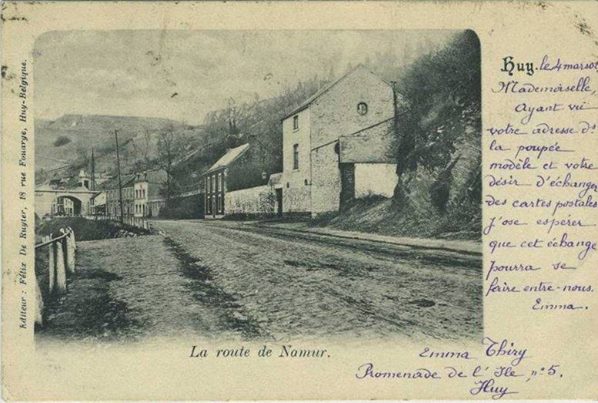 Huy. le 4 mars 02
Mademoiselle,
Ayant vu
votre adresse ds
la poupée
modèle et votre
désir d'échanger
des cartes postales
J'ose espérer
que cet échange
pourra se
faire entre-nous.
Emma.
Editeur : Félix De Ruyter, 18 rue Fouarge, Huy-Belgique.
La route de Namur.
Emma Thiry
Promenade de l'Ile, n° 5.
Huy